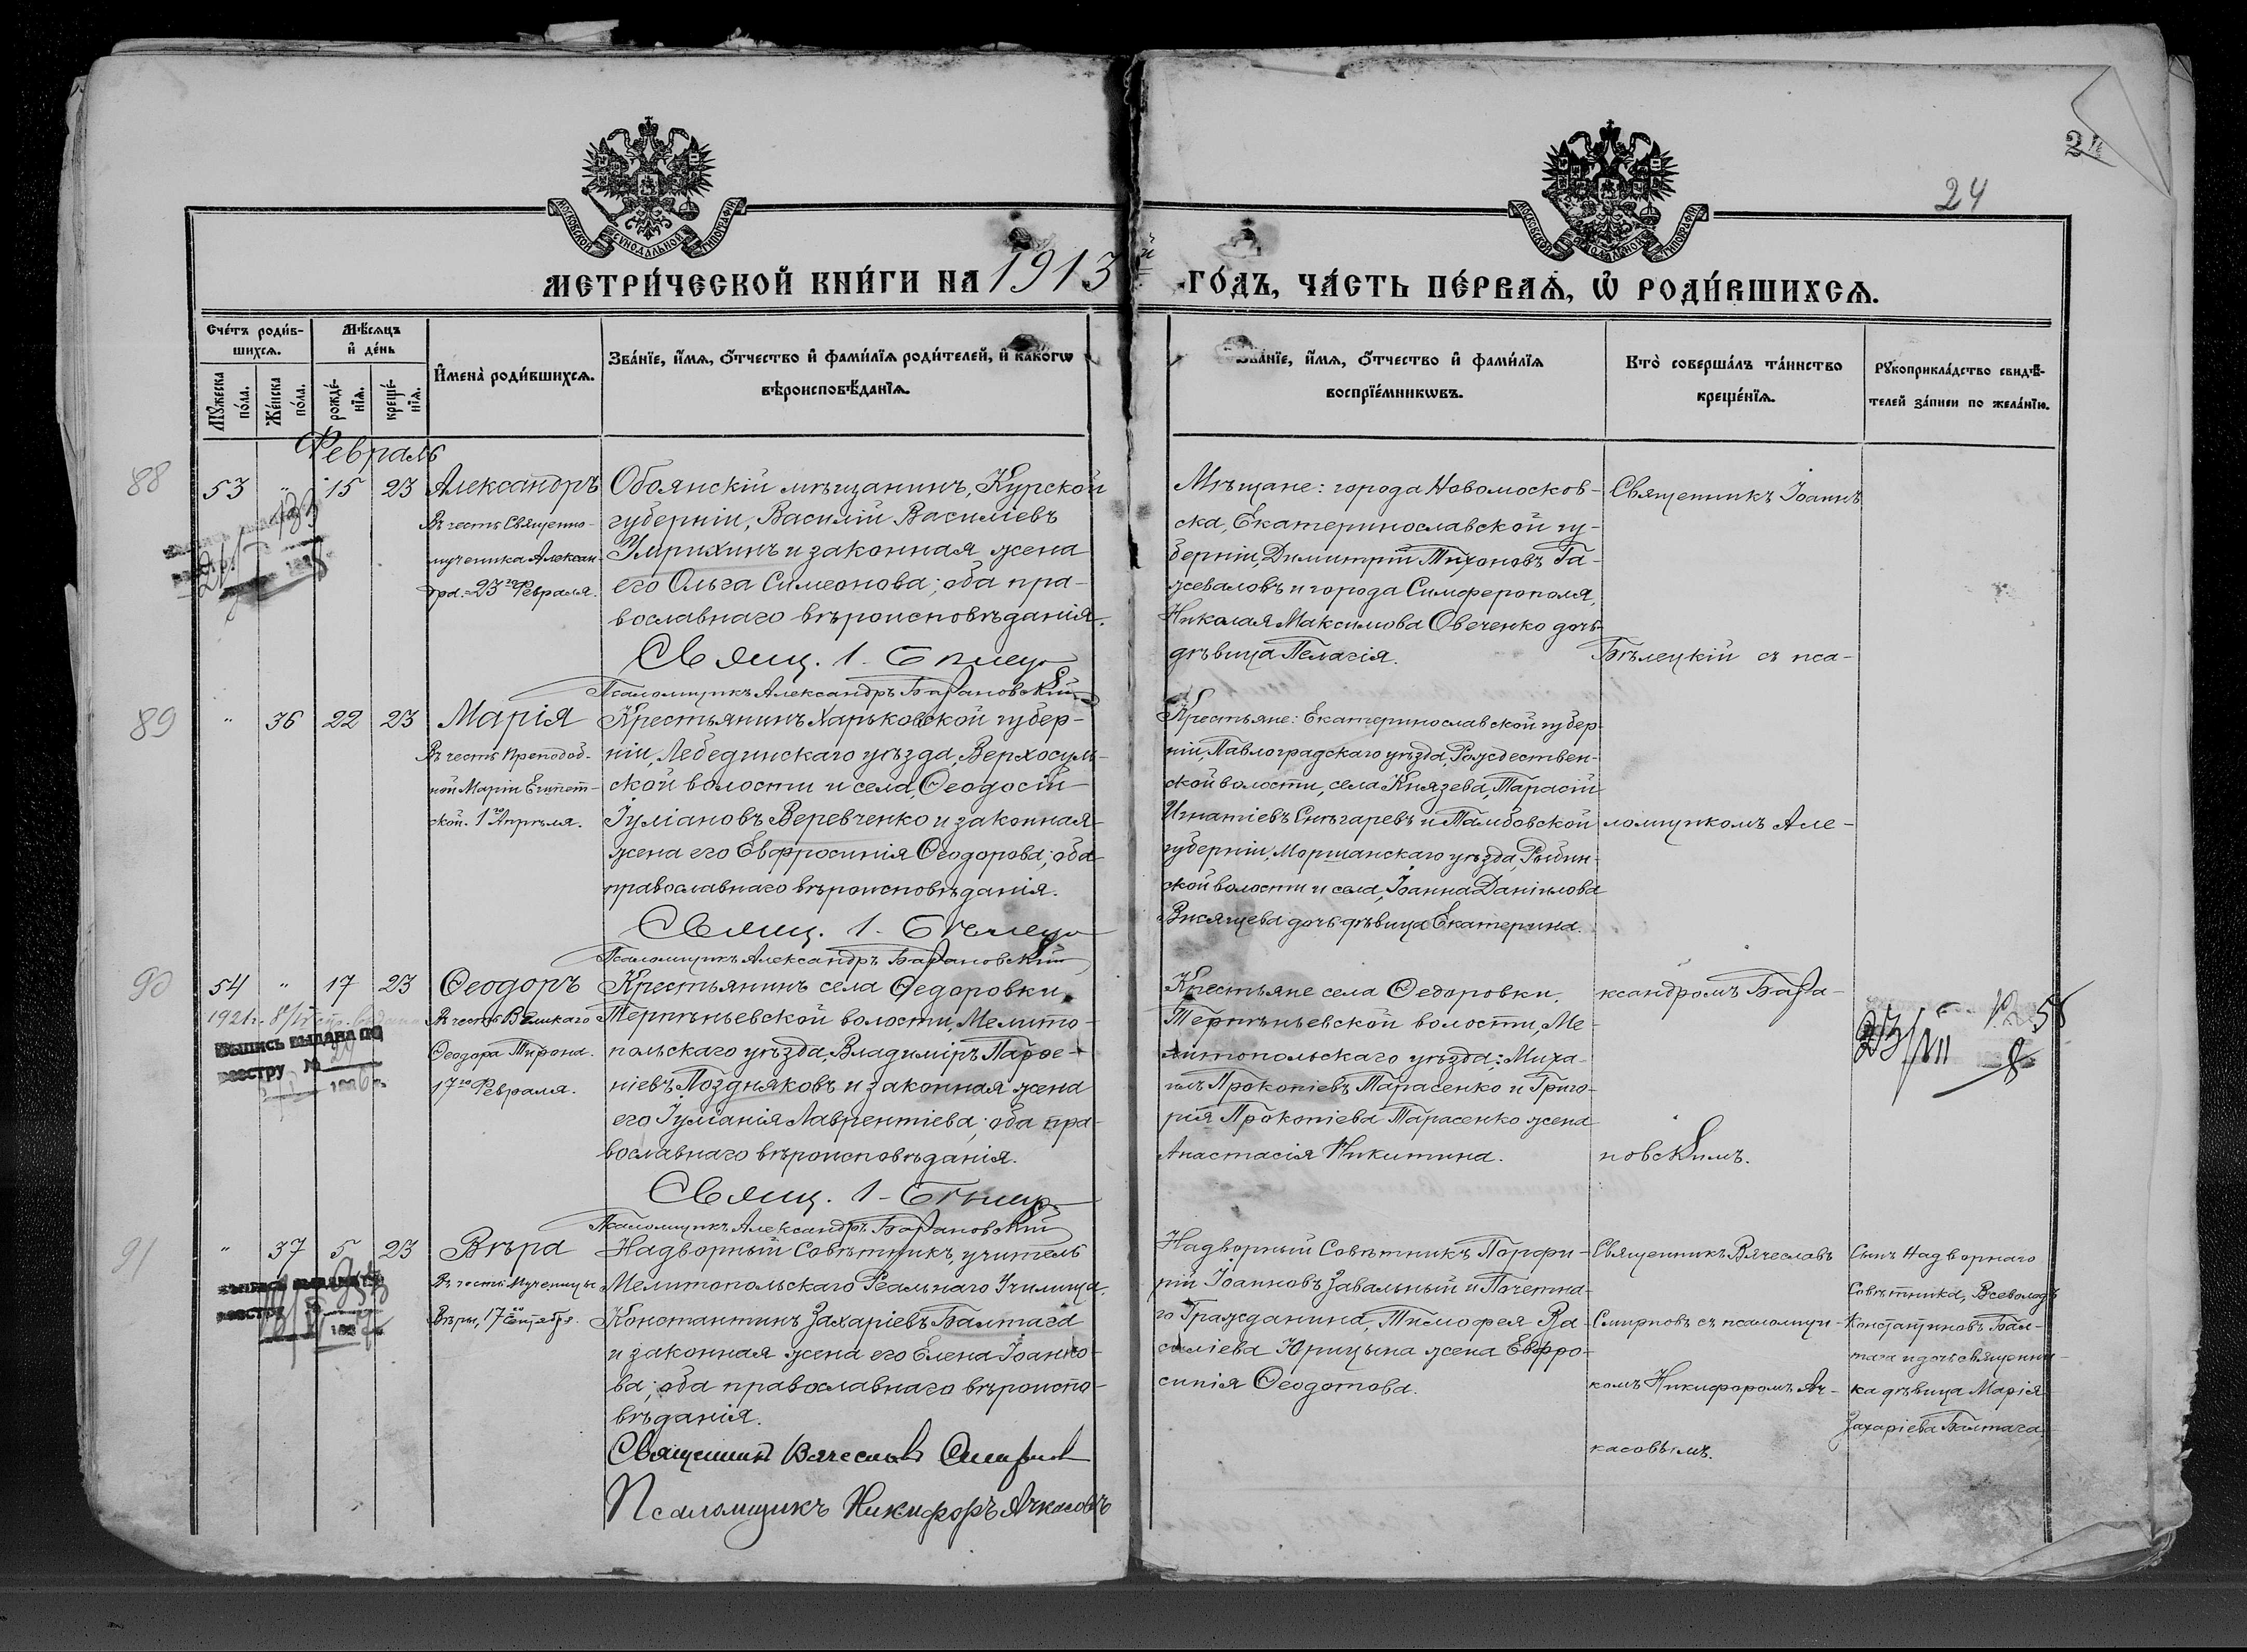 24
МОСКОВСКОЙ СѴНОДАЛЬНОЙ ТИПОГРАФІИ
МОСКОВСКОЙ СѴНОДАЛЬНОЙ ТИПОГРАФІИ
МЕТРИ́ЧЕСКОЙ КНИ́ГИ НА 1913й ГО́ДЪ, ЧА́СТЬ ПЕ́РВАѦ, Ѡ҆ РОДИ́ВШИХСѦ.
Сче́тъ роди́в-
шихсѧ.
Мѣ́сѧцъ
и҆ де́нь
Мꙋ́жеска
по́ла.
Же́нска
по́ла.
рожде́-
нїѧ.
креще́-
нїѧ.
И҆мена̀ роди́вшихсѧ.
Зва́нїе, и҆́мѧ, ѻ҆́тчество и҆ фами́лїѧ роди́телей, и҆ како́гѡ
вѣроисповѣ́данїѧ.
Зва́нїе, и҆́мѧ, ѻ҆́тчество и҆ фами́лїѧ
воспрїе́мникѡвъ.
Кто̀ соверша́лъ та́инство
креще́нїѧ.
Рꙋкоприкла́дство свидѣ́-
телей за́писи по жела́нїю.
Февраль
88
53 " 15 23
Александръ
Въ честь Священно-
мученика Алексан-
дра. 23го Февраля.
Обоянскій мѣщанинъ, Курской
губерніи, Василій Василіевъ
Умрихинъ и законная жена
его Ольга Симеонова; оба пра-
вославнаго вѣроисповѣданія.
Свящ. І. Бѣлец
Псаломщикъ Александръ Барановскій
Мѣщане: города Новомосков-
ска, Екатеринославской гу-
берніи, Димитрій Тихоновъ Га-
жеваловъ и города Симферополя,
Николая Максимова Овеченко дочь
дѣвица Пелагія.
Священникъ Іоаннъ
Бѣлецкій съ пса-
89
" 36 22 23
Марія
Въ честь Преподоб-
ной Маріи Египет-
ской. 1го Апрѣля.
Крестьянинъ Харьковской губер-
ніи, Лебединскаго уѣзда, Верхосуль-
ской волости и села, Ѳеодосій
Іуліановъ Веревченко и законная
жена его Евфросинія Ѳеодорова; оба
православнаго вѣроисповѣданія.
Свящ. І. Бѣлец
Псаломщикъ Александръ Барановскій
Крестьяне: Екатеринославской губер-
ніи, Павлоградскаго уѣзда, Рождествен-
ской волости, села Князева, Тарасій
Игнатіевъ Снѣгаревъ и Тамбовской
губерніи, Моршанскаго уѣзда, Рыбин-
ской волости и села, Іоанна Даніилова
Висящева дочь дѣвица Екатерина.
ломщикомъ Але-
90
54 " 17 23
1921г.
Выпись выдана по
реестру №
Ѳеодоръ
Въ честь Великаго
Ѳеодора Тирона.
17го Февраля.
Крестьянинъ села Ѳедоровки,
Терпѣньевской волости, Мелито-
польскаго уѣзда, Владиміръ Парѳе-
ніевъ Поздняковъ и законная жена
его Іуліанія Лаврентіева; оба пра-
вославнаго вѣроисповѣданія.
Свящ. І. Бѣлец
Псаломщикъ Александръ Барановскій
Крестьяне села Ѳедоровки,
Терпѣньевской волости, Ме-
литопольскаго уѣзда: Миха-
илъ Прокопіевъ Тарасенко и Григо-
рія Прокопіева Тарасенко жена
Анастасія Никитина.
ксандромъ Бара-
новскимъ.
23/VII
91
" 37 5 23
выпись выдана по
реестру №
Вѣра
Въ честь Мученицы
Вѣры, 17го Сентября.
Надворный Совѣтникъ, учитель
Мелитопольскаго Реальнаго Училища,
Константинъ Захаріевъ Балтага
и законная жена его Елена Іоанно-
ва; оба православнаго вѣроиспо-
вѣданія.
Священникъ Вячеславъ Смирновъ
Псаломщикъ Никифоръ Ачкасовъ
Надворный Совѣтникъ Порфи-
рій Іоанновъ Завальный и Почетна-
го Гражданина, Тимофея Ва-
силіева Юрицына жена Евфро-
синія Ѳеодотова.
Священникъ Вячеславъ
Смирновъ съ псаломщи-
комъ Никифоромъ Ач-
касовымъ.
Сынъ Надворнаго
Совѣтника, Всеволодъ
Константиновъ Бал-
тага и дочь священни-
ка дѣвица Марія
Захаріева Балтага